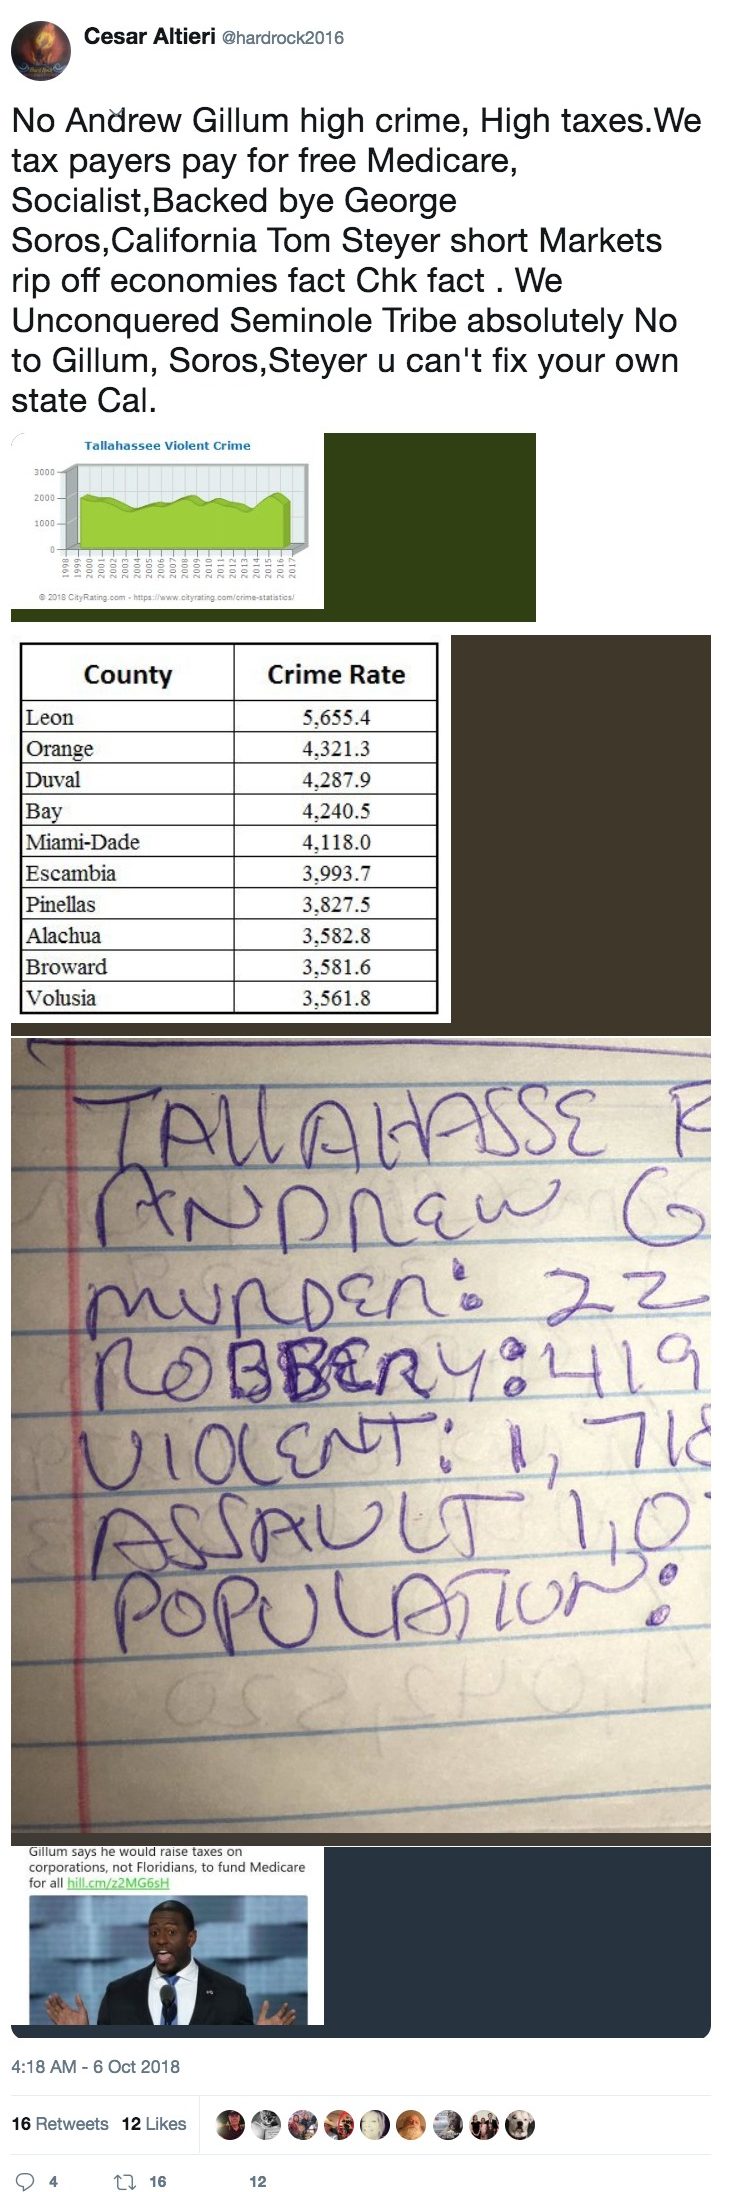 Cesar Altieri @hardrock2016
No Andrew Gillum high crime, High taxes.We
tax payers pay for free Medicare,
Socialist,Backed bye George
Soros,California Tom Steyer short Markets
rip off economies fact Chk fact . We
Unconquered Seminole Tribe absolutely No
to Gillum, Soros,Steyer u can't fix your own
state Cal.
Tallahassee Violent Crime
3000
2000
1000
0
1998 1999 2000 2001 2002 2003 2004 2005 2006 2007 2008 2009 2010 2011 2012 2013 2014 2015 2016 2017
© 2018 CityRating.com - https://www.cityrating.com/crime-statistics/
County Crime Rate
Leon 5,655.4
Orange 4,321.3
Duval 4,287.9
Bay 4,240.5
Miami-Dade 4,118.0
Escambia 3,993.7
Pinellas 3,827.5
Alachua 3,582.8
Broward 3,581.6
Volusia 3,561.8
TALLAHASSE F
ANDREW G
MURDER: 22
ROBBERY: 419
VIOLENT: 1,718
ASSAULT 1,0
POPULATION:
Gillum says he would raise taxes on
corporations, not Floridians, to fund Medicare
for all hill.cm/z2MG6sH
4:18 AM - 6 Oct 2018
16 Retweets 12 Likes
4 16 12